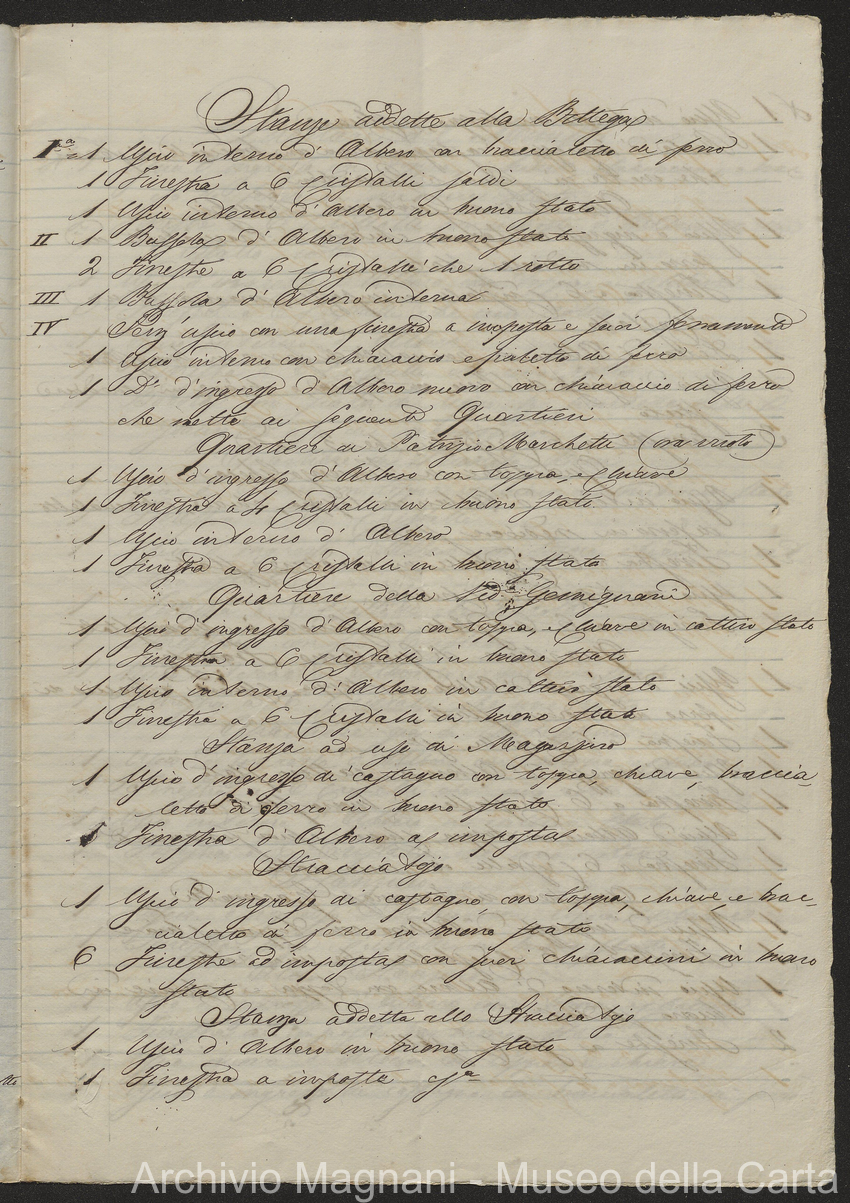 Stanze addette alla Bottega
Iª 1 Uscio interno d'Albero con braccialetto di ferro
1 Finestra a 6 Cristalli saldi
1 Uscio interno d'Albero in buono stato
II 1 Bussola d'Albero in buono stato
2 Finestre a 6 Cristalli che 1 rotto
III 1 Bussola d'Albero interna
IV Senz'uscio con una finestra a imposta e suoi ferramenti
1 Uscio interno con chiavaccio e paletto di ferro
1 Dº d'ingresso d'Albero nuovo con chiavaccio di ferro
che mette ai seguenti Quartieri
Quartiere di Patrizio Marchetti (ora vuoto)
1 Uscio d'ingresso d'Albero con toppa, e Chiave
1 Finestra a 4 Cristalli in buono stato
1 Uscio interno d'Albero
1 Finestra a 6 Cristalli in buono stato
Quartiere della Ved. Gemignani
1 Uscio d'ingresso d'Albero con toppa, e Chiave in cattivo stato
1 Finestra a 6 Cristalli in buono stato
1 Uscio interno d'Albero in cattivo stato
1 Finestra a 6 Cristalli in buono stato
Stanza ad uso di Magazzino
1 Uscio d'ingresso di castagno con toppa, chiave, braccia-
letto di ferro in buono stato
1 Finestra d'Albero a imposta
Stracciatojo
1 Uscio d'ingresso di castagno con toppa, chiave, e brac-
cialetto di ferro in buono stato
6 Finestre ad imposta con suoi chiavaccini in buono
stato
Stanza addetta allo Stracciatojo
1 Uscio d'Albero in buono stato
1 Finestra a imposta
Archivio Magnani - Museo della Carta